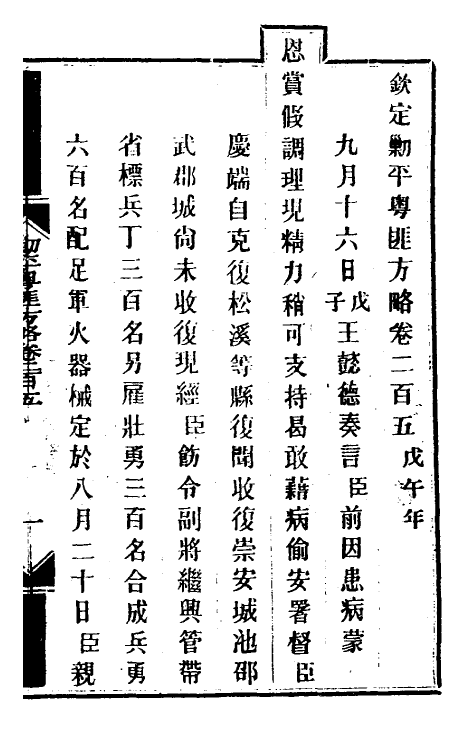 欽定勦平粵匪方略卷二百五 戊午年
九月十六日戊子王懿德奏言臣前因患病蒙
恩賞假調理現精力稍可支持曷敢藉病偷安署督臣
慶端自克復松溪等縣復聞收復崇安城池邵
武郡城尙未收復現經臣飭令副將繼興管帶
省標兵丁三百名另雇壯勇三百名合成兵勇
六百名配足軍火器械定於八月二十日臣親
欽定勦平粵匪方略卷二百五 一